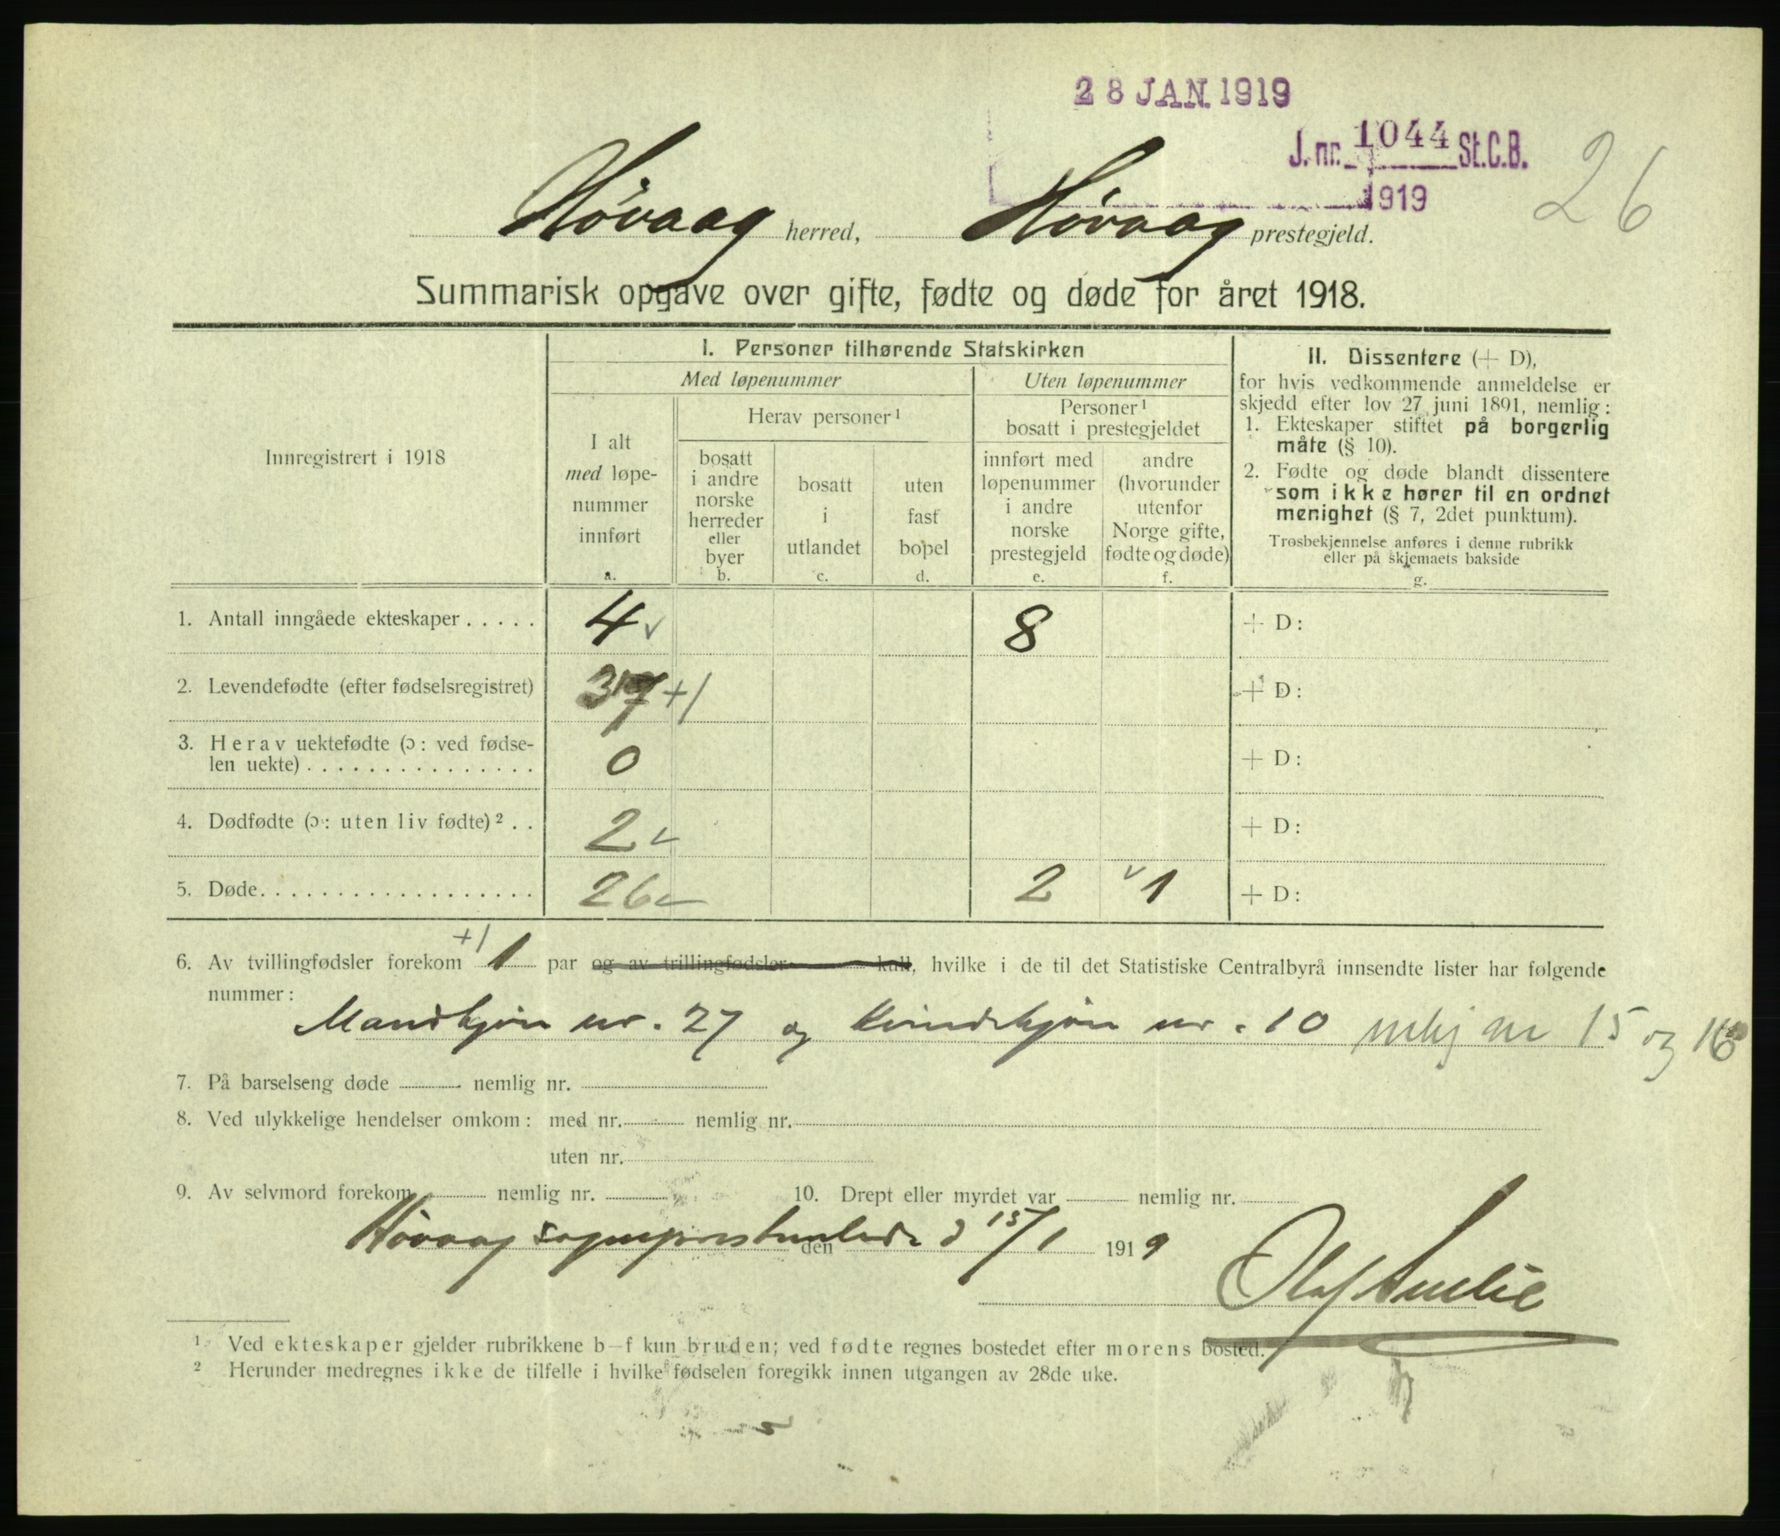 28 JAN. 1919
J. nr. 1044 St.C.B.
1919
26
Høvaag herred, Høvaag prestegjeld.
Summarisk opgave over gifte, fødte og døde for året 1918.
Innregistrert i 1918
I. Personer tilhørende Statskirken
Med løpenummer
Uten løpenummer
I alt
med løpe-
nummer
innført
a.
Herav personer ¹
bosatt
i andre
norske
herreder
eller
byer
b.
bosatt
i
utlandet
c.
uten
fast
bopel
d.
Personer ¹
bosatt i prestegjeldet
innført med
løpenummer
i andre
norske
prestegjeld
e.
andre
(hvorunder
utenfor
Norge gifte,
fødte og døde)
f.
II. Dissentere (+ D),
for hvis vedkommende anmeldelse er
skjedd efter lov 27 juni 1891, nemlig:
1. Ekteskaper stiftet på borgerlig
måte (§ 10).
2. Fødte og døde blandt dissentere
som ikke hører til en ordnet
menighet (§ 7, 2det punktum).
Trosbekjennelse anføres i denne rubrikk
eller på skjemaets bakside
g.
1. Antall inngåede ekteskaper . . . . . 4 8 + D:
2. Levendefødte (efter fødselsregistret) 37 +1 + D:
3. Herav uektefødte (ɔ: ved fødse-
len uekte) . . . . . . . . . . . . . . . 0 + D:
4. Dødfødte (ɔ: uten liv fødte) ² . . 2 + D:
5. Døde. . . . . . . . . . . . . . . . . . 26 2 1 + D:
+1
6. Av tvillingfødsler forekom 1 par og av trillingfødsler kull, hvilke i de til det Statistiske Centralbyrå innsendte lister har følgende
nummer:
Mandkjøn nr. 27 og Kvindekjøn nr. 10 mkj nr 15 og 16
7. På barselseng døde nemlig nr.
8. Ved ulykkelige hendelser omkom: med nr. nemlig nr.
uten nr.
9. Av selvmord forekom nemlig nr. 10. Drept eller myrdet var nemlig nr.
Høvaag den 15/1 1919
Olaf
¹ Ved ekteskaper gjelder rubrikkene b–f kun bruden; ved fødte regnes bostedet efter morens bosted.
² Herunder medregnes ikke de tilfelle i hvilke fødselen foregikk innen utgangen av 28de uke.